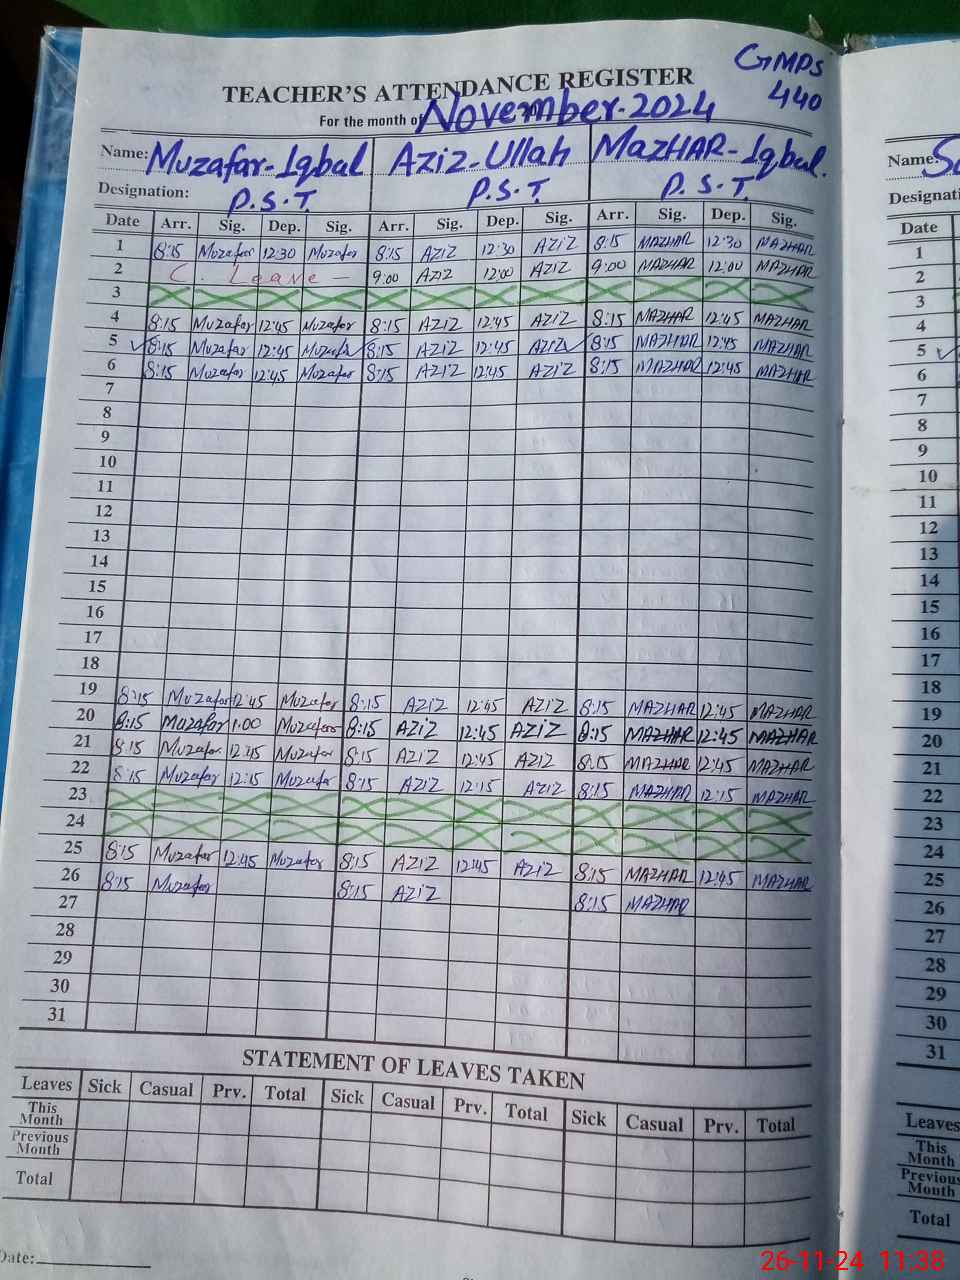 GMPS
440
TEACHER'S ATTENDANCE REGISTER
For the month of November-2024
Name: Muzafar-Iqbal Aziz-Ullah MAZHAR-Iqbal.
Designation: P.S.T. P.S.T. P.S.T.
Date Arr. Sig. Dep. Sig. Arr. Sig. Dep. Sig. Arr. Sig. Dep. Sig.
1 8:15 Muzafar 12:30 Muzafar 8:15 AZiZ 12:30 AZiZ 8:15 MAZHAR 12:30 MAZHAR
2 C. Leave — 9:00 AZiZ 12:00 AZiZ 9:00 MAZHAR 12:00 MAZHAR
3
4 8:15 Muzafar 12:45 Muzafar 8:15 AZiZ 12:45 AZiZ 8:15 MAZHAR 12:45 MAZHAR
5 8:15 Muzafar 12:45 Muzafar 8:15 AZiZ 12:45 AZiZ 8:15 MAZHAR 12:45 MAZHAR
6 8:15 Muzafar 12:45 Muzafar 8:15 AZiZ 12:45 AZiZ 8:15 MAZHAR 12:45 MAZHAR
7
8
9
10
11
12
13
14
15
16
17
18
19 8:15 Muzafar 12:45 Muzafar 8:15 AZiZ 12:45 AZiZ 8:15 MAZHAR 12:45 MAZHAR
20 8:15 Muzafar 1:00 Muzafar 8:15 AZiZ 12:45 AZiZ 8:15 MAZHAR 12:45 MAZHAR
21 8:15 Muzafar 12:45 Muzafar 8:15 AZiZ 12:45 AZiZ 8:15 MAZHAR 12:45 MAZHAR
22 8:15 Muzafar 12:15 Muzafar 8:15 AZiZ 12:15 AZiZ 8:15 MAZHAR 12:15 MAZHAR
23
24
25 8:15 Muzafar 12:45 Muzafar 8:15 AZiZ 12:45 AZiZ 8:15 MAZHAR 12:45 MAZHAR
26 8:15 Muzafar 8:15 AZiZ 8:15 MAZHAR
27
28
29
30
31
STATEMENT OF LEAVES TAKEN
Leaves Sick Casual Prv. Total Sick Casual Prv. Total Sick Casual Prv. Total
This Month
Previous Month
Total
Date:
Name:
Date
1
2
3
4
5
6
7
8
9
10
11
12
13
14
15
16
17
18
19
20
21
22
23
24
25
26
27
28
29
30
31
Leaves
This
Month
Month
Total
26-11-24 11:38